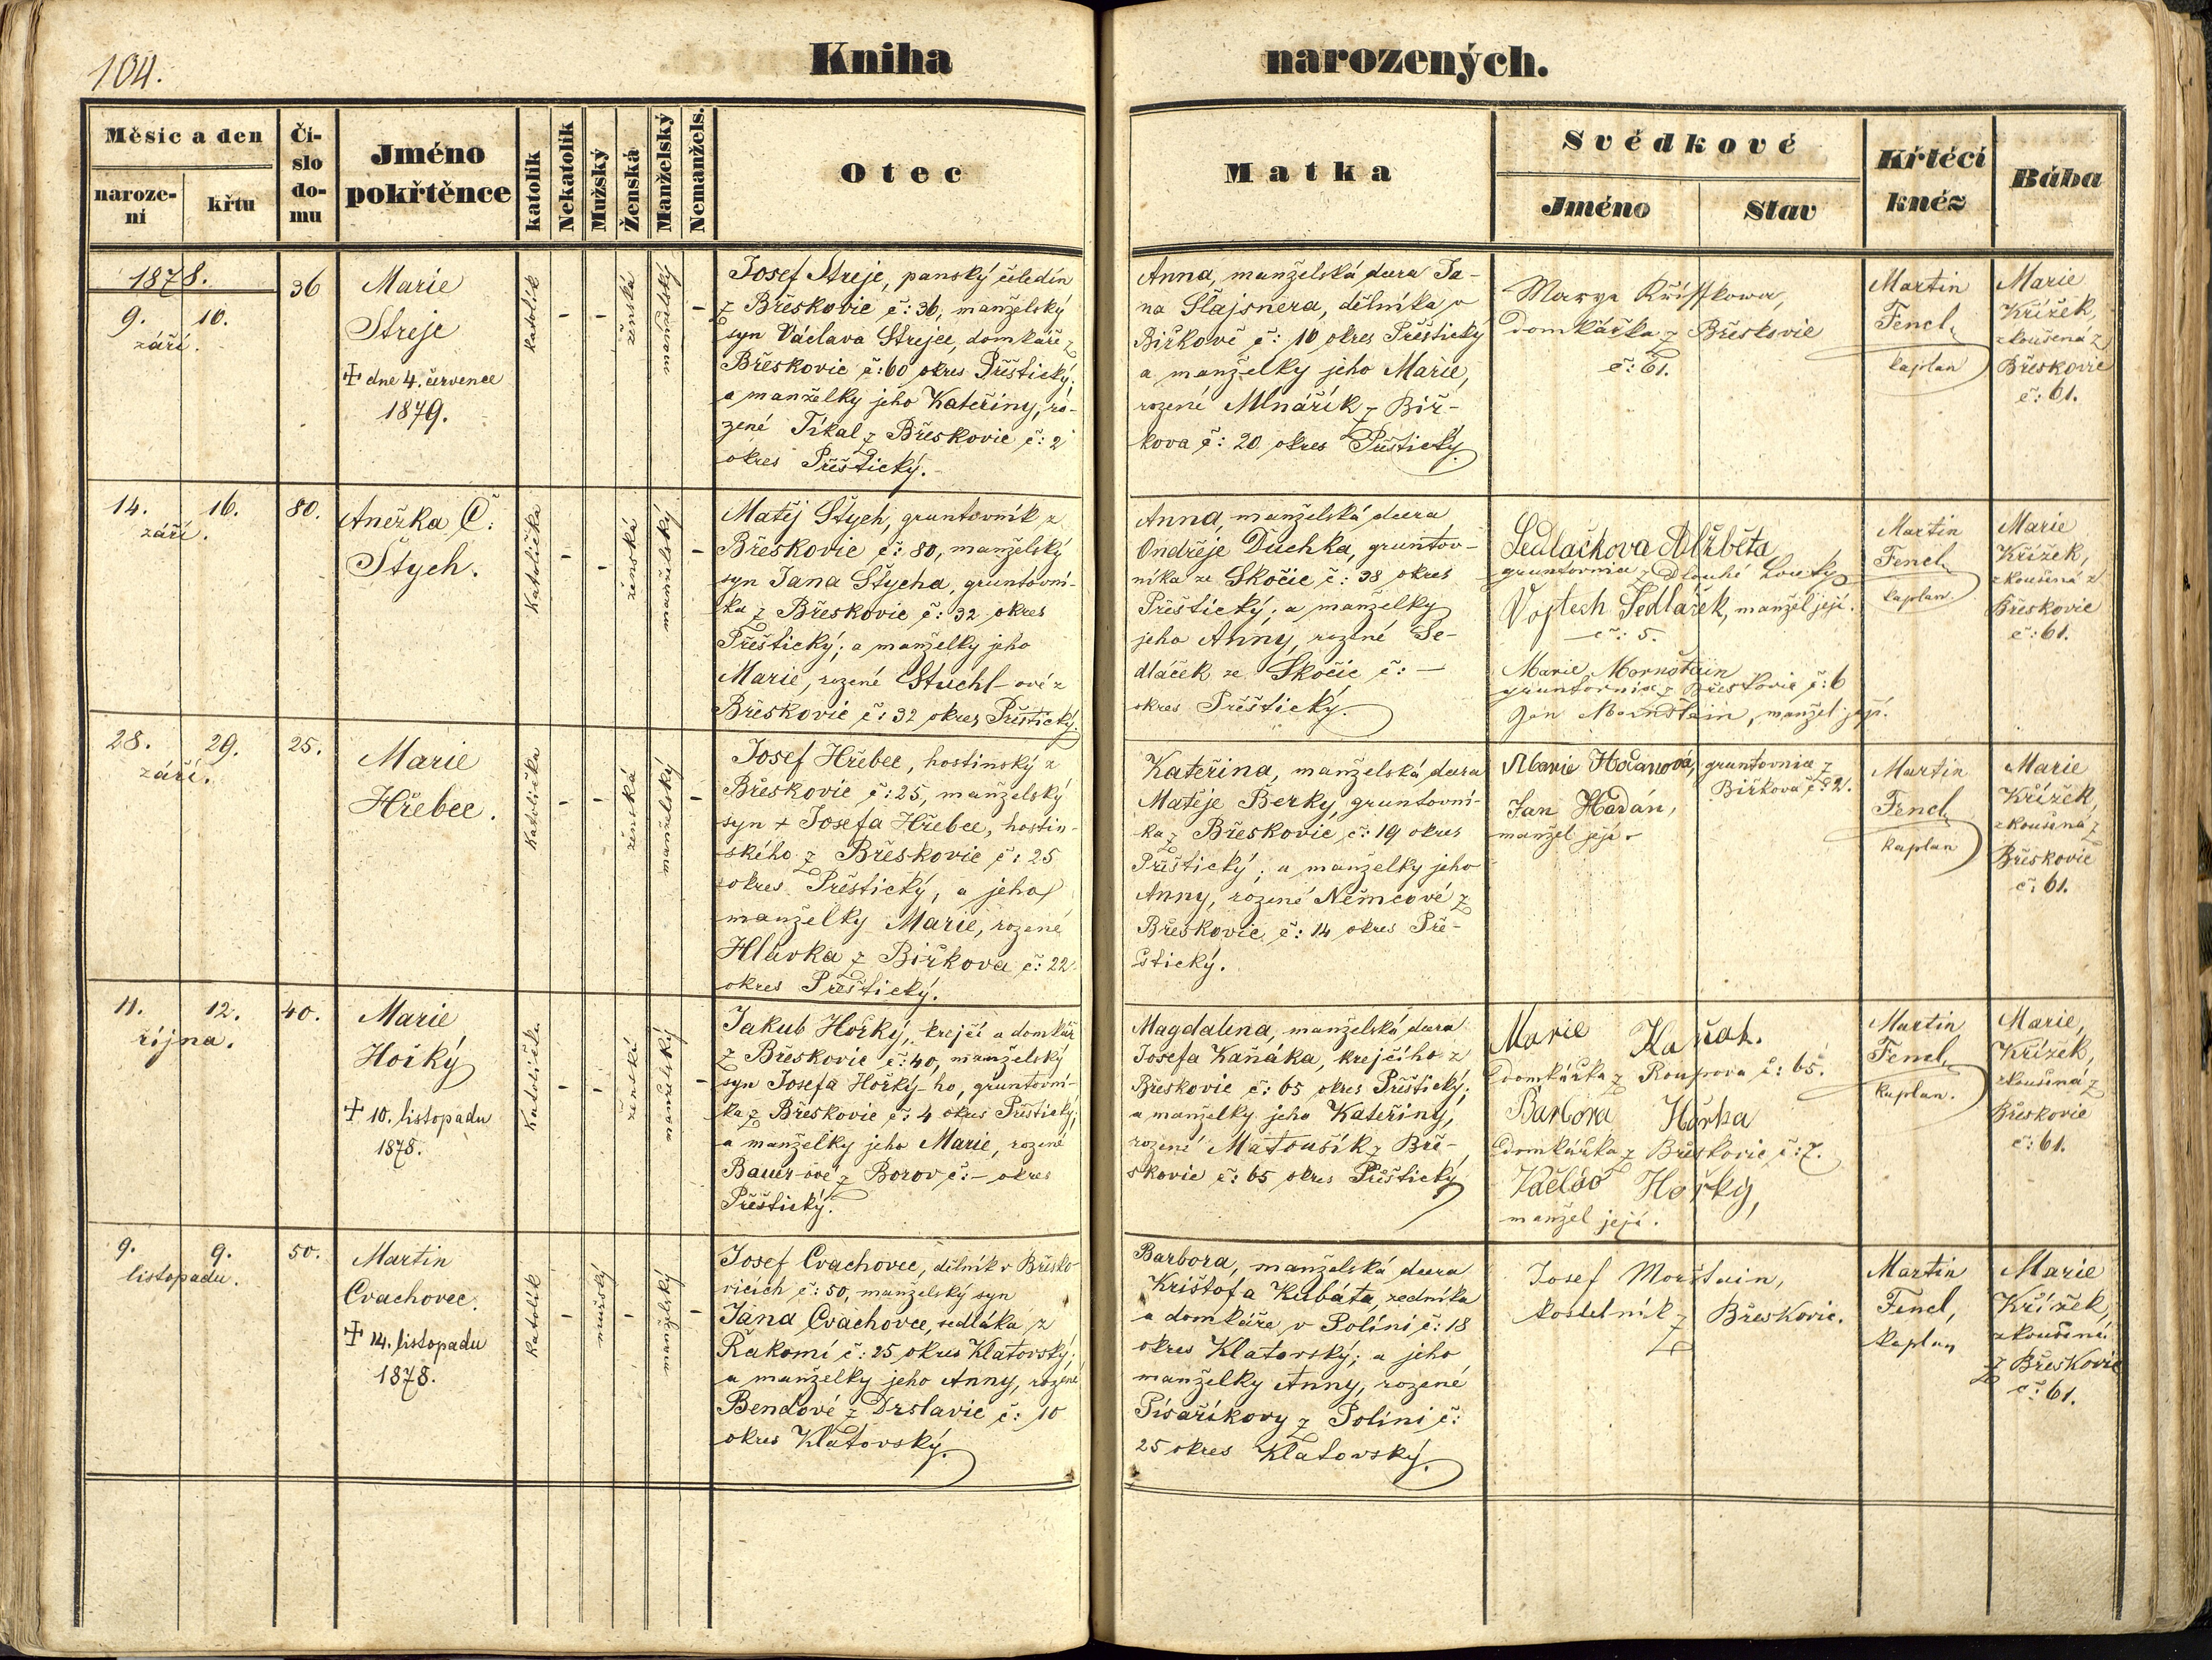 104.
Kniha narozených.
Měsíc a den
naroze-
ní
křtu
Čí-
slo
do-
mu
Jméno
pokřtěnce
katolík
Nekatolík
Mužský
Ženská
Manželský
Nemanžels.
Otec
Matka
Svědkové
Jméno
Stav
Křtící
kněz
Bába
1878.
9. 10.
září.
36
Marie
Streje
✝ dne 4. července
1879.
katolík
-
-
ženská
manželský
-
Josef Streje, panský čeledín
z Břeskovic č: 36, manželský
syn Václava Strejce, domkáře z
Břeskovic č: 60 okres Přeštický;
a manželky jeho Kateřiny, ro-
zené Tikal z Břeskovic č: 2
okres Přeštický.
Anna, manželská dcera Ja-
na Šlajsnera, dělníka v
Biřkově č: 10 okres Přeštický
a manželky jeho Marie,
rozené Mlnářík z Biř-
kova č: 20 okres Přeštický.
Marye Křísskowa,
domkářka z Břeskovic
č: 61.
Martin
Fencl,
kaplan
Marie
Křížek,
zkoušená z
Břeskovic
č: 61.
14. 16.
září.
80.
Anežka Č:
Štych.
Katolička
-
-
ženská
manželský
-
Matěj Štych, gruntovník z
Břeskovic č: 80, manželský
syn Jana Štycha, gruntovní-
ka z Břeskovic č: 32 okres
Přeštický; a manželky jeho
Marie, rozené Stuchl-ové z
Břeskovic č: 32 okres Přeštický.
Anna, manželská dcera
Ondřeje Duchka, gruntov-
níka ze Skočic č: 38 okres
Přeštický; a manželky
jeho Anny, rozené Se-
dláček ze Skočic č: —
okres Přeštický.
Sedlačkova Alžběta
gruntovnice z Dlouhé Louky
Vojtech Sedláček, manžel její.
č: 5.
Marie Mornštein
gruntovnice z Břeskovic č: 6
Jan Mornštein, manžel její.
Martin
Fencl,
kaplan
Marie
Křížek,
zkoušená z
Břeskovic
č: 61.
28. 29.
září.
25.
Marie
Hřebec.
Katolička
-
-
ženská
manželský
-
Josef Hřebec, hostinský z
Břeskovic č: 25, manželský
syn + Josefa Hřebce, hostin-
ského z Břeskovic č: 25
okres Přeštický, a jeho
manželky Marie, rozené
Hlávka z Biřkova č: 22
okres Přeštický.
Kateřina, manželská dcera
Matěje Berky, gruntovní-
ka z Břeskovic, č: 19 okres
Přeštický; a manželky jeho
Anny, rozené Němcové z
Břeskovic č: 14 okres Pře-
štický.
Marie Hodanová, gruntovnice z
Biřkova č: 2.
Jan Hadán,
manžel její
Martin
Fencl,
kaplan
Marie
Křížek,
zkoušená z
Břeskovic
č: 61.
11. 12.
října.
40.
Marie
Hořký
✝ 10. listopadu
1878.
Katolička
-
-
ženská
manželský
-
Jakub Hořký, krejčí a domkář
z Břeskovic č: 40, manželský
syn Josefa Hořký-ho, gruntovní-
ka z Břeskovic č: 4 okres Přeštický;
a manželky jeho Marie, rozené
Bauer-ové z Borov č: — okres
Přeštický.
Magdalena, manželská dcera
Josefa Kaňáka, krejčího z
Břeskovic č: 65 okres Přeštický;
a manželky jeho Kateřiny,
rozené Matoušík z Bře-
skovic č: 65 okres Přeštický
Marie Kaňak.
domkářka z Roupova č: 65.
Barbora Hořka
domkářka z Břeskovic č: 7.
Václav Hořký,
manžel její.
Martin
Fencl,
kaplan.
Marie,
Křížek,
zkoušená z
Břeskovic
č: 61.
9. 9.
listopadu.
50.
Martin
Cvachovec.
✝ 14. listopadu
1878.
katolík
-
mužský
-
manželský
-
Josef Cvachovec, dělník v Břesko-
vicích č: 50, manželský syn
Jana Cvachovce, sedláka z
Řakomí č: 25 okres Klatovský;
a manželky jeho Anny, rozené
Bendové z Drslavic č: 10
okres Klatovský.
Barbora, manželská dcera
Krištofa Kubáta, zedníka
a domkáře v Políni č: 18
okres Klatovský; a jeho
manželky Anny, rozené
Písaříkovy z Políni č:
25 okres Klatovský.
Josef Morštain,
kostelník z Břeskovic.
Martin
Fencl,
kaplan
Marie
Křížek,
zkoušená
z Břeskovic
č: 61.